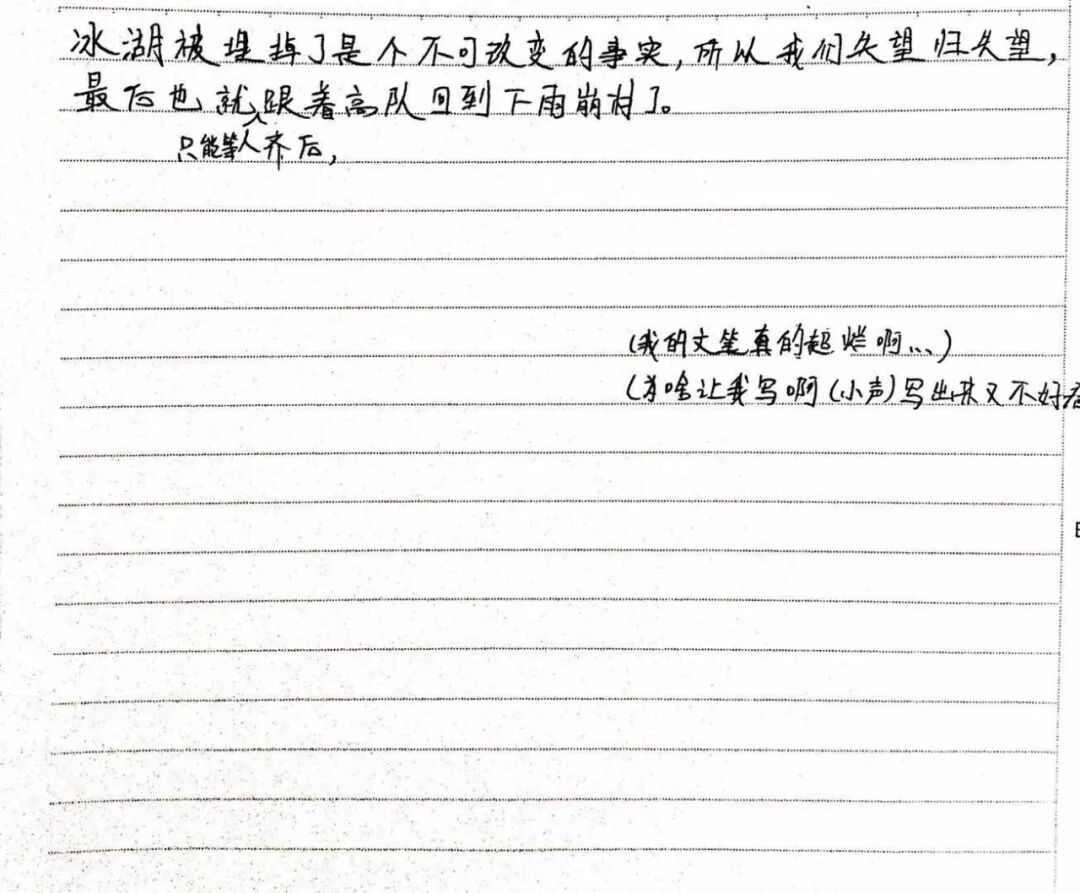 冰湖被埋掉了是个不可改变的事实,所以我们失望归失望,
最后也就跟着高队回到下雨崩村了。
只能等人齐后,
(我的文笔真的超烂啊...)
(为啥让我写啊(小声)写出来又不好看